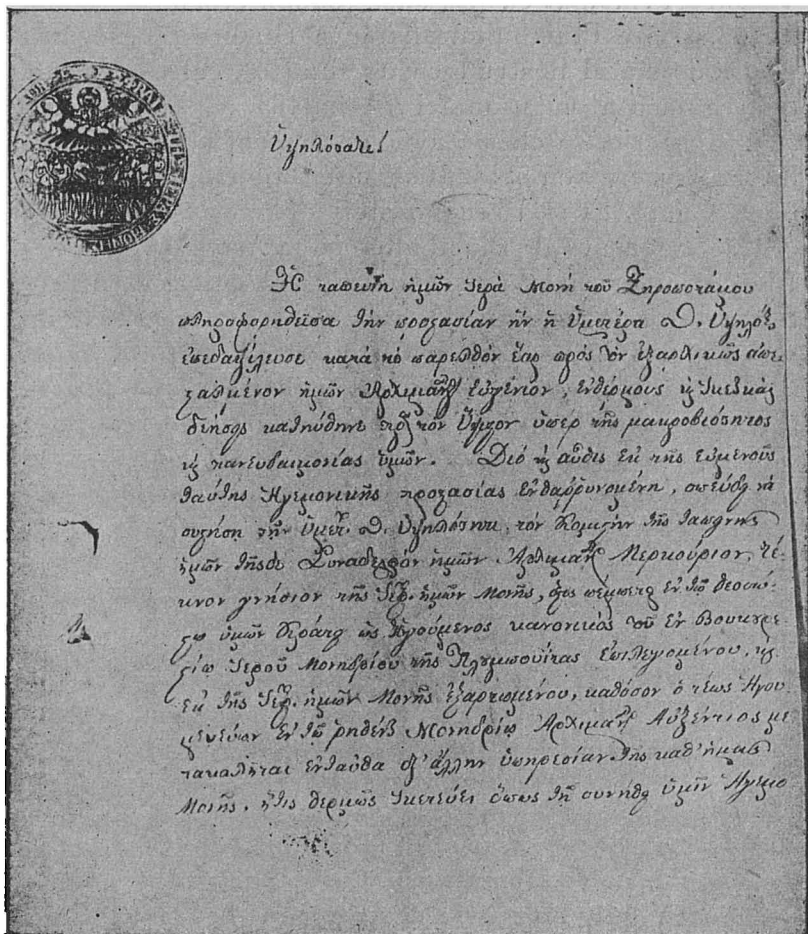 Ὑψηλότατε!
Ἡ ταπεινὴ ἡμῶν Ἱερὰ Μονὴ τοῦ Ξηροποτάμου
πληροφορηθεῖσα τὴν προστασίαν ἣν ἡ Ὑμετέρα Θ. Ὑψηλότ.
ἐπεδαψίλευσε κατὰ τὸ παρελθὸν ἔαρ πρὸς τὸν ἐξαρχικῶς ἀπε
σταλμένον ἡμῶν Ἀρχιμανδ. Εὐγένιον, ἐνθέρμους καὶ ἱκετικὰς
δεήσεις κατηύθυνε πρὸς τὸν Ὕψιστον ὑπὲρ τῆς μακροβιότητος
καὶ πανευδαιμονίας ὑμῶν. Διὸ καὶ αὖθις ἐκ τῆς εὐμενοῦς
ταύτης Ἡγεμονικῆς προστασίας ἐνθαρρυνομένη, σπεύδει νὰ
συστήσῃ τῇ Ὑμετ. Θ. Ὑψηλότητι, τὸν κομιστὴν τῆς ταπεινῆς
ἡμῶν τῆσδε Συνάδελφον ἡμῶν Ἀρχιμανδ. Μερκούριον, τέ-
κνον γνήσιον τῆς ἡμῶν Μονῆς, ὅστις πέμπεται ἐν τῷ θεοσώ-
στῳ ὑμῶν Κράτει ὡς Ἡγούμενος κανονικὸς τοῦ ἐν Βουκουρε
στίῳ Ἱεροῦ Μονηδρίου τῆς Πλουμπουΐτας ἐπιλεγομένου, καὶ
ἐκ τῆς ἡμῶν Μονῆς ἐξαρτωμένου, καθόσον ὁ τέως Ἡγου
μενεύων ἐν τῷ ῥηθέντι Μονηδρίῳ Ἀρχιμανδ. Αὐξέντιος με
τακαλεῖται ἐνταῦθα δι' ἄλλην ὑπηρεσίαν τῆς καθ' ἡμᾶς
Μονῆς, ἥτις θερμῶς ἱκετεύει ὅπως τῇ συνήθει ὑμῖν Ἡγεμο